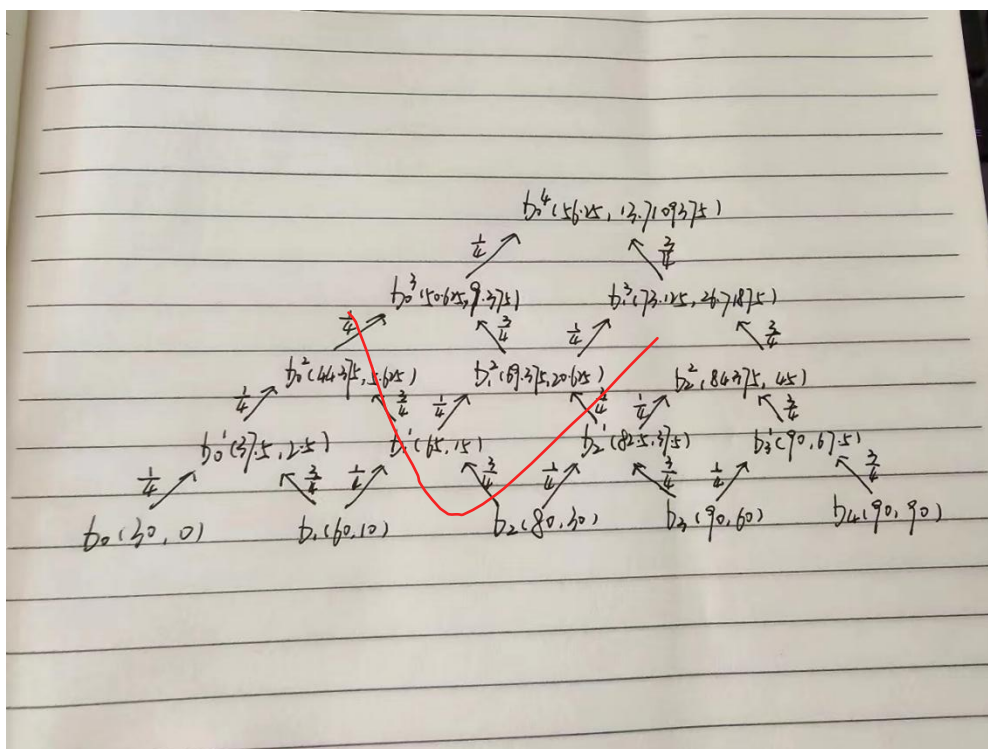 b₀⁴(56.25, 13.7109375)
1/4 3/4
b₀³(50.625, 9.375) b₁³(73.125, 26.71875)
1/4 3/4 1/4 3/4
b₀²(44.375, 5.625) b₁²(69.375, 20.625) b₂²(84.375, 45)
1/4 3/4 1/4 3/4 1/4 3/4
b₀¹(37.5, 2.5) b₁¹(65, 15) b₂¹(82.5, 37.5) b₃¹(90, 67.5)
1/4 3/4 1/4 3/4 1/4 3/4 1/4 3/4
b₀(30, 0) b₁(60, 10) b₂(80, 30) b₃(90, 60) b₄(90, 90)